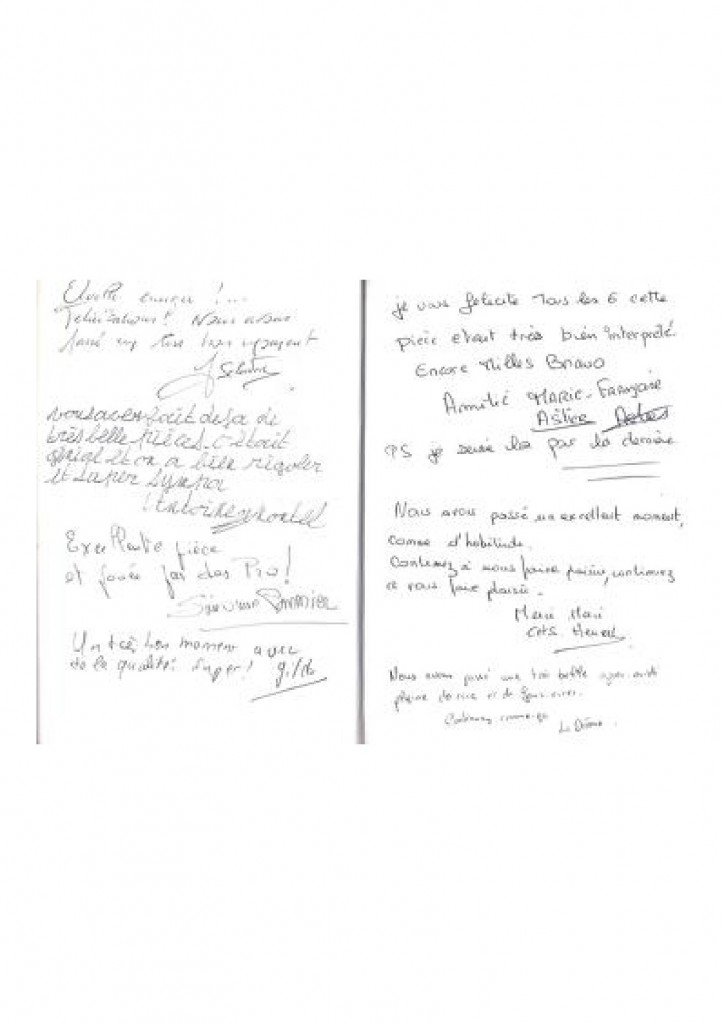 encore !...
Félicitations! Nous avons
passé un très bon moment
vous avez fait deja de
très belle pièces. c'était
génial et on a bien rigoler
et super sympa
Excellente pièce
et jouée par des Pro!
Un très bon moment avec
de la qualité. super!
je vous félicite Tous les 6 cette
pièce etant très bien interpreté
Encore Milles Bravo
Amitié MARIE-Françoise
PS je serai là par la dernière
Nous avons passé un excellent moment,
comme d'habitude.
Continuez à nous faire plaisir, continuez
à vous faire plaisir.
Merci
Nous avons passé une très belle après-midi
pleine de rire et de fous-rires.
Continuez comme ça